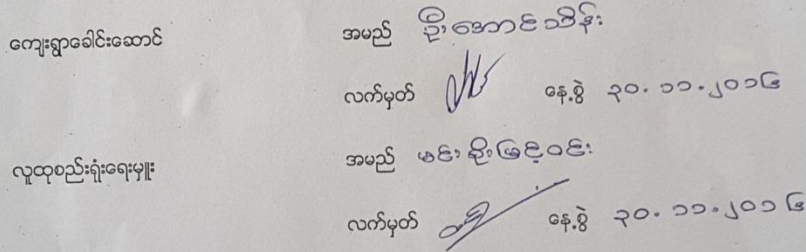 ကျေးရွာခေါင်းဆောင် အမည် ဦးအောင်သိန်း
လက်မှတ် နေ့စွဲ ၃၀.၁၁.၂၀၁၆
လူထုစည်းရုံးရေးမှူး အမည် မင်းဦးမြင့်ဝင်း
လက်မှတ် နေ့စွဲ ၃၀.၁၁.၂၀၁၆